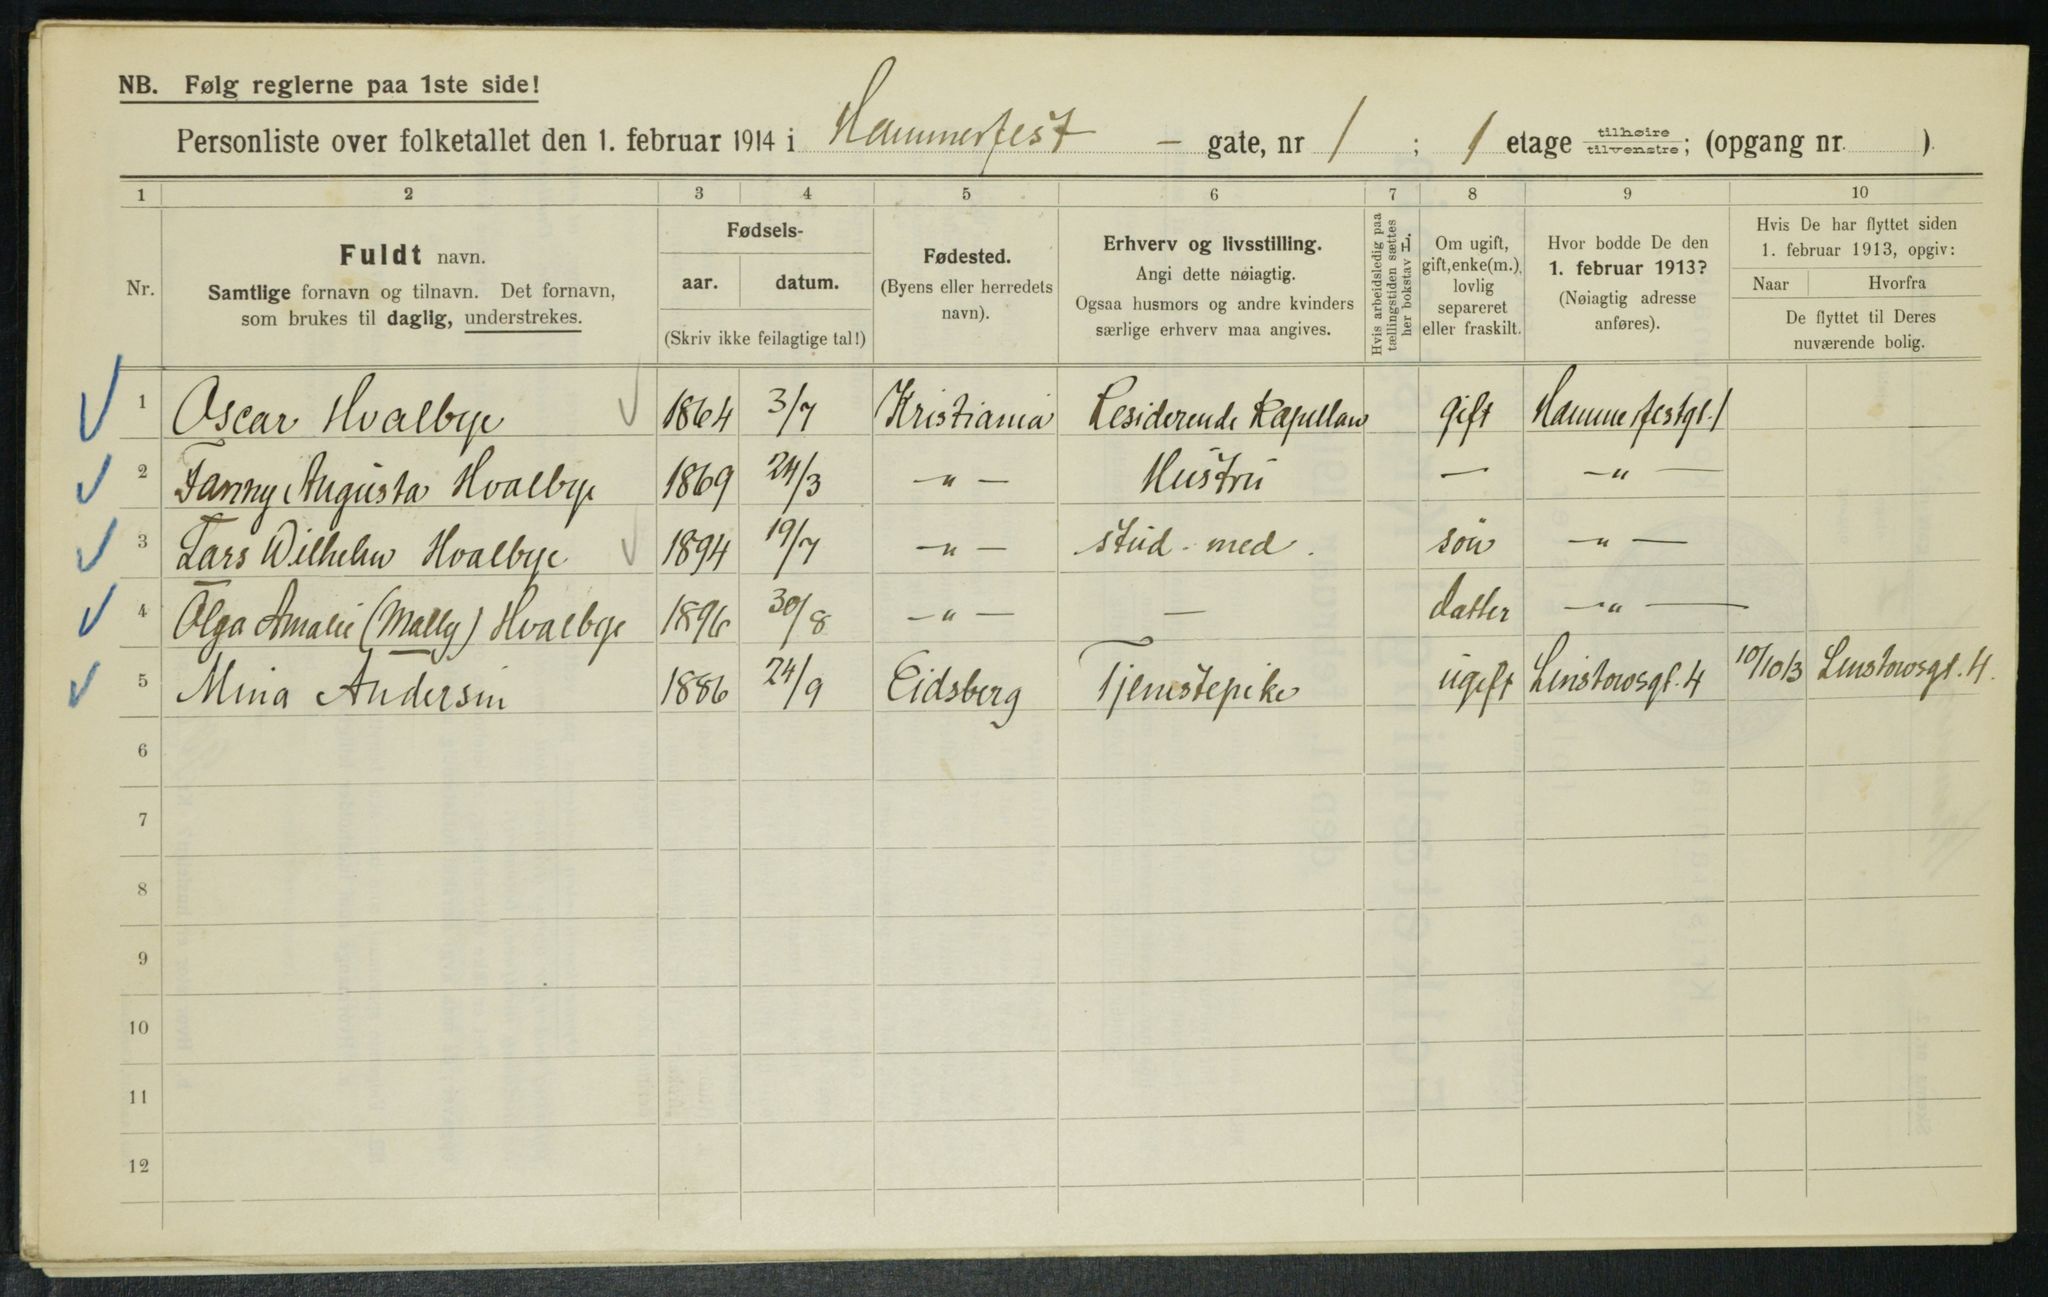 NB. Følg reglerne paa 1ste side!
Personliste over folketallet den 1. februar 1914 i Hammerfest - gate, nr 1 ; 1 etage tilhøire tilvenstre; (opgang nr. ).
1 2 3 4 5 6 7 8 9 10
Nr.
Fuldt navn.
Samtlige fornavn og tilnavn. Det fornavn,
som brukes til daglig, understrekes.
Fødsels-
aar. datum.
(Skriv ikke feilagtige tal!)
Fødested.
(Byens eller herredets
navn).
Erhverv og livsstilling.
Angi dette nøiagtig.
Ogsaa husmors og andre kvinders
særlige erhverv maa angives.
Hvis arbeidsledig paa
tællingstiden sættes
her bokstav L.
Om ugift,
gift, enke(m.),
lovlig
separeret
eller fraskilt.
Hvor bodde De den
1. februar 1913?
(Nøiagtig adresse
anføres).
Hvis De har flyttet siden
1. februar 1913, opgiv:
Naar Hvorfra
De flyttet til Deres
nuværende bolig.
1 Oscar Hvalbye 1864 3/7 Kristiania Residerende Kapellan gift Hammerfestgt. 1
2 Fanny Augusta Hvalbye 1869 24/3 -"- Hustru - -"-
3 Lars Wilhelm Hvalbye 1894 19/7 -"- stud. med. søn -"-
4 Olga Amalie (Mally) Hvalbye 1896 30/8 -"- - datter -"-
5 Mina Andersen 1886 24/9 Eidsberg Tjenestepike ugift Linstowsgt. 4 10/10 13 Linstowsgt. 4.
6
7
8
9
10
11
12